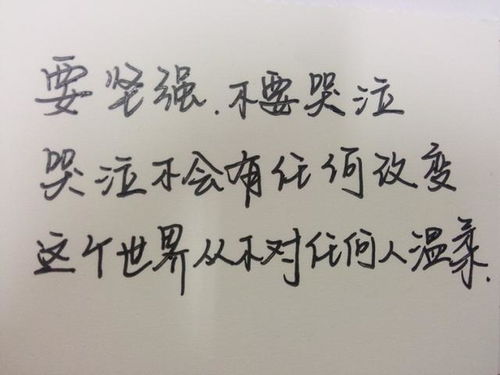 要坚强.不要哭泣
哭泣不会有任何改变
这个世界从不对任何人温柔.